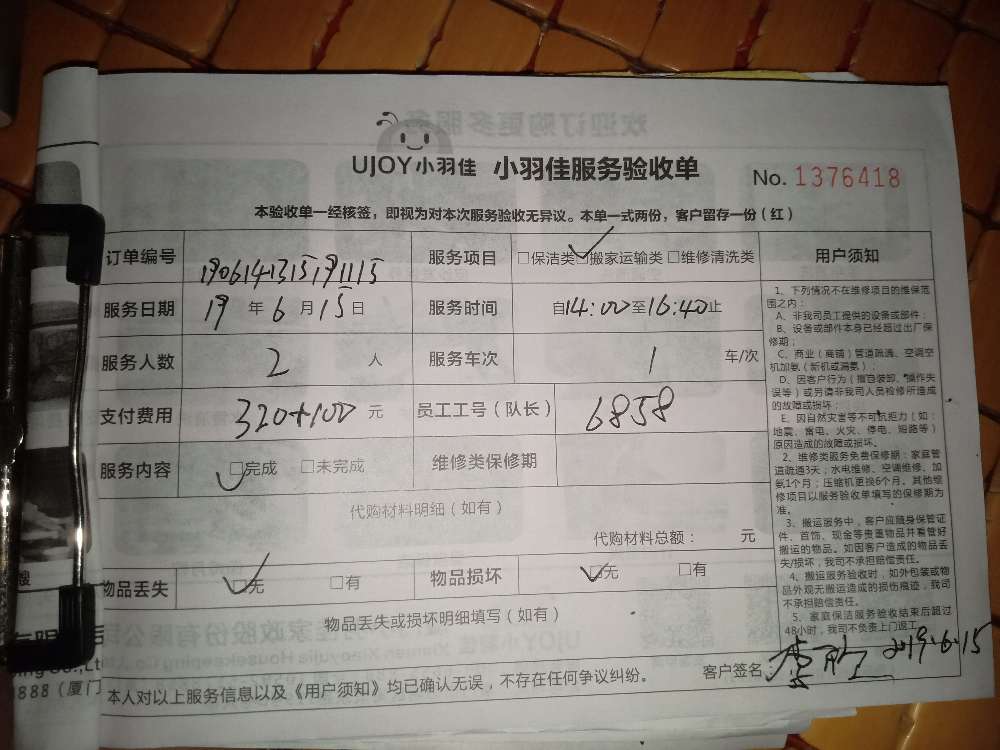 UJOY小羽佳 小羽佳服务验收单 No. 1376418
本验收单一经核签，即视为对本次服务验收无异议。本单一式两份，客户留存一份（红）
订单编号 19061413151911115 服务项目 □保洁类 ☑搬家运输类 □维修清洗类 用户须知
服务日期 19 年 6 月 15 日 服务时间 自14:00至16:40止
服务人数 2 人 服务车次 1 车/次
支付费用 320+100 元 员工工号（队长） 6858
服务内容 ☑完成 □未完成 维修类保修期
代购材料明细（如有）
代购材料总额： 元
物品丢失 ☑无 □有 物品损坏 ☑无 □有
物品丢失或损坏明细填写（如有）
客户签名： 2019.6.15
本人对以上服务信息以及《用户须知》均已确认无误，不存在任何争议纠纷。
1、下列情况不在维修项目的维保范
围之内：
A、非我司员工提供的设备或部件；
B、设备或部件本身已经超过出厂保
修期；
C、商业（商铺）管道疏通、空调空
机加氨（新机或漏氨）；
D、因客户行为（擅自装卸、操作失
误等）或另请非我司人员检修所造成
的故障或损坏；
E、因自然灾害等不可抗拒力（如：
地震、雷电、火灾、停电、短路等）
原因造成的故障或损坏。
2、维修类服务免费保修期：家庭管
道疏通3天；水电维修、空调维修、加
氨1个月；压缩机更换6个月。其他维
修项目以服务验收单填写的保修期为
准。
3、搬运服务中，客户应随身保管证
件、首饰、现金等贵重物品并看管好
搬运的物品。如因客户造成的物品丢
失/损坏，我司不承担赔偿责任。
4、搬运服务验收时，如外包装或物
品外观无搬运造成的损伤痕迹，我司
不承担赔偿责任。
5、家庭保洁服务验收结束后超过
48小时，我司不负责上门返工。
8888（厦门